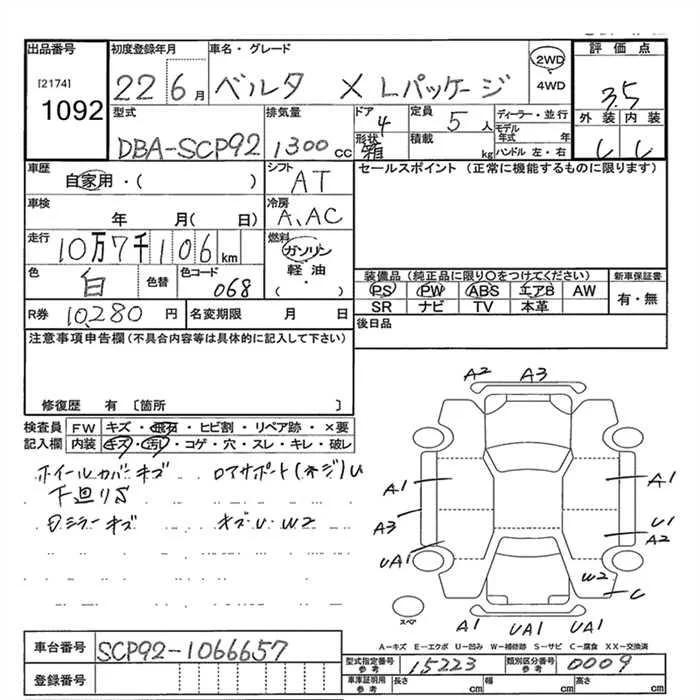 出品番号 初度登録年月 車名・グレード 評価点
[2174] 1092 22 6月 ベルタ X Lパッケージ 2WD・4WD 3.5
型式 排気量 ドア 定員 ディーラー・並行 外装 内装
DBA-SCP92 1300cc 4 5人 モデル年式 年
形状 箱 積載 kg ハンドル 左・右 C C
車歴 シフト セールスポイント (正常に機能するものに限ります)
自家用・( ) AT
車検 冷房
年 月( 日) A.AC
走行 燃料
10万7千106km ガソリン
色 色替 色コード 軽油 装備品(純正品に限り○をつけてください) 新車保証書
白 068 ( ) PS PW ABS エアB AW 有・無
SR ナビ TV 本革
R券 10,280円 名変期限 月 日 後日品
注意事項申告欄(不具合内容等は具体的に記入して下さい)
修復歴 有 〔箇所 〕
検査員 FW キズ・飛石・ヒビ割・リペア跡・×要
記入欄 内装 キズ・汚れ・コゲ・穴・スレ・キレ・破レ
ホイールカバーキズ ロアサポート(ネジ)U
下廻りS
キズU W2
A2 A3
A1 A1
A3 U1
A2
UA1 W2
C
スペア A1 UA1 UA1
A-キズ E-エクボ U-凹み W-補修跡 S-サビ C-腐食 XX-交換済
車台番号 SCP92-1066657
型式指定番号 参考 15223 類別区分番号 参考 0009
登録番号 車庫証明用 参考 長さ cm 幅 cm 高さ cm